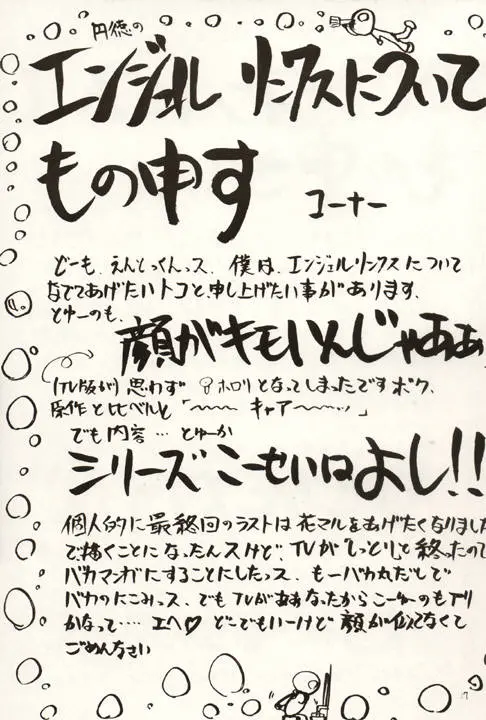 円徳の
エンジェル リンクスについて
もの申す コーナー
どーも、えんとっくんっス、僕は、エンジェルリンクスについて
なでてあげたいトコと、申し上げたい事があります、
とゆーのも、
顔がキモいんじゃあぁぁ
(TV版が) 思わず ホロリとなってしまったですボク、
原作と比べると「〜〜〜 キャア〜〜〜ッ」
でも内容… とゆーか
シリーズ こーせいはよし!!
個人的に最終回のラストは花マルをあげたくなりました
で描くことになったんスけど、TVが「しっとり」と終ったので
バカマンガにすることにしたっス、もーバカ丸だしで
バカのにこみっス、でもTVがああなったからこーゆーのもアリ
かなって…. エヘ♡ どーでもいーけど 顔が似てなくて
ごめんなさい